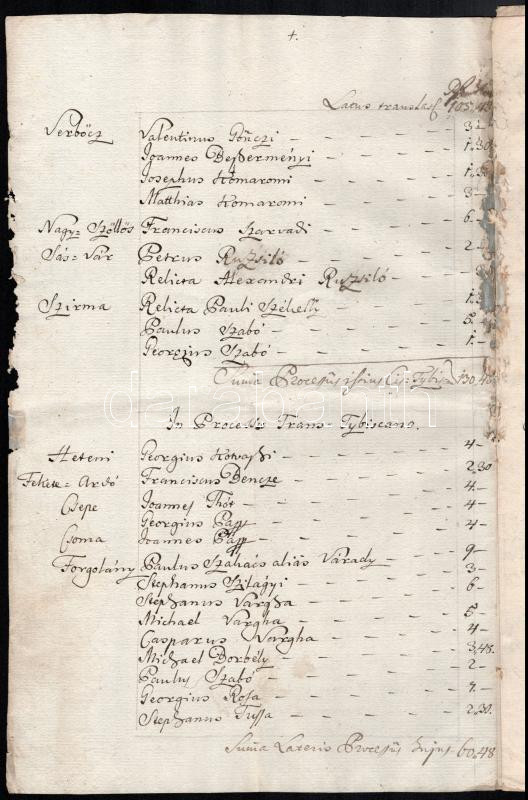 4.
Latus translat. 105.43
Verbőcz Valentinus Gönczi – – – – 3 –
Joannes Beßerményi – – – – 1.30
Josephus Komaromi – – – –
Matthias Komaromi – – – – 3 –
Nagy-Szőllős Franciscus Szarvadi – – – – 6 –
Sás-Vár Petrus Ruzsiló – – – – 2 –
Relicta Alexandri Ruzsiló –
Szirma Relicta Pauli Székelly – – –
Paulus Szabó – – – – 5.
Georgius Szabó – – – – 1. –
Suma Processus istius Cis-Tybis. 130.48
In Processu Trans-Tybiscano.
Heteni Georgius Kovaßi – – – – 4 –
Fekete-Ardó Franciscus Bencze – – – – 2.30
Csepe Joannes Thót – – – – 4. –
Georgius Papp – – – – 4 –
Csoma Joannes Papp – – – – 4 –
Forgolány Paulus Szakács aliás Várady – – 9 –
Stephanus Szilágyi – – – – 3 –
Stephanus Vargha – – – – 6 –
Michael Vargha – – – –
Casparus Vargha – – – – 5 –
Michael Borbély – – – – 4
Paulus Szabó – – – – 3.48.
Georgius Rosa – – – – 2 –
Stephanus Tussa – – – – 2.30.
Suma Lateris Processus hujus 60.48
darabanth